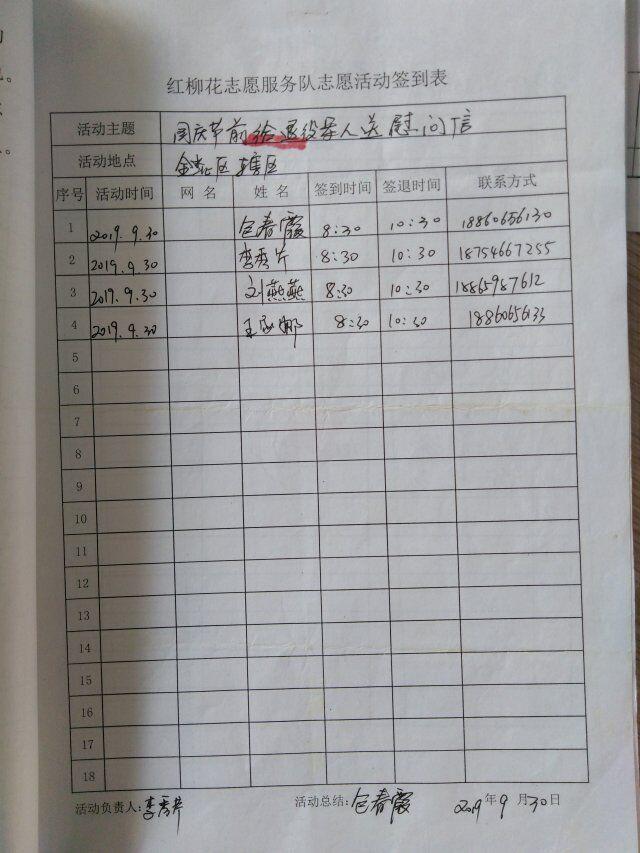 红柳花志愿服务队志愿活动签到表
活动主题 国庆节前给退役军人送慰问信
活动地点 区辖区
序号 活动时间 网 名 姓 名 签到时间 签退时间 联系方式
1 2019.9.30 包春霞 8:30 10:30 18860656130
2 2019.9.30 李秀芹 8:30 10:30 18754667255
3 2019.9.30 刘燕燕 8:30 10:30 18865987612
4 2019.9.30 王 娜 8:30 10:30 18860656133
5
6
7
8
9
10
11
12
13
14
15
16
17
18
活动负责人:李秀芹 活动总结:包春霞 2019年9月30日